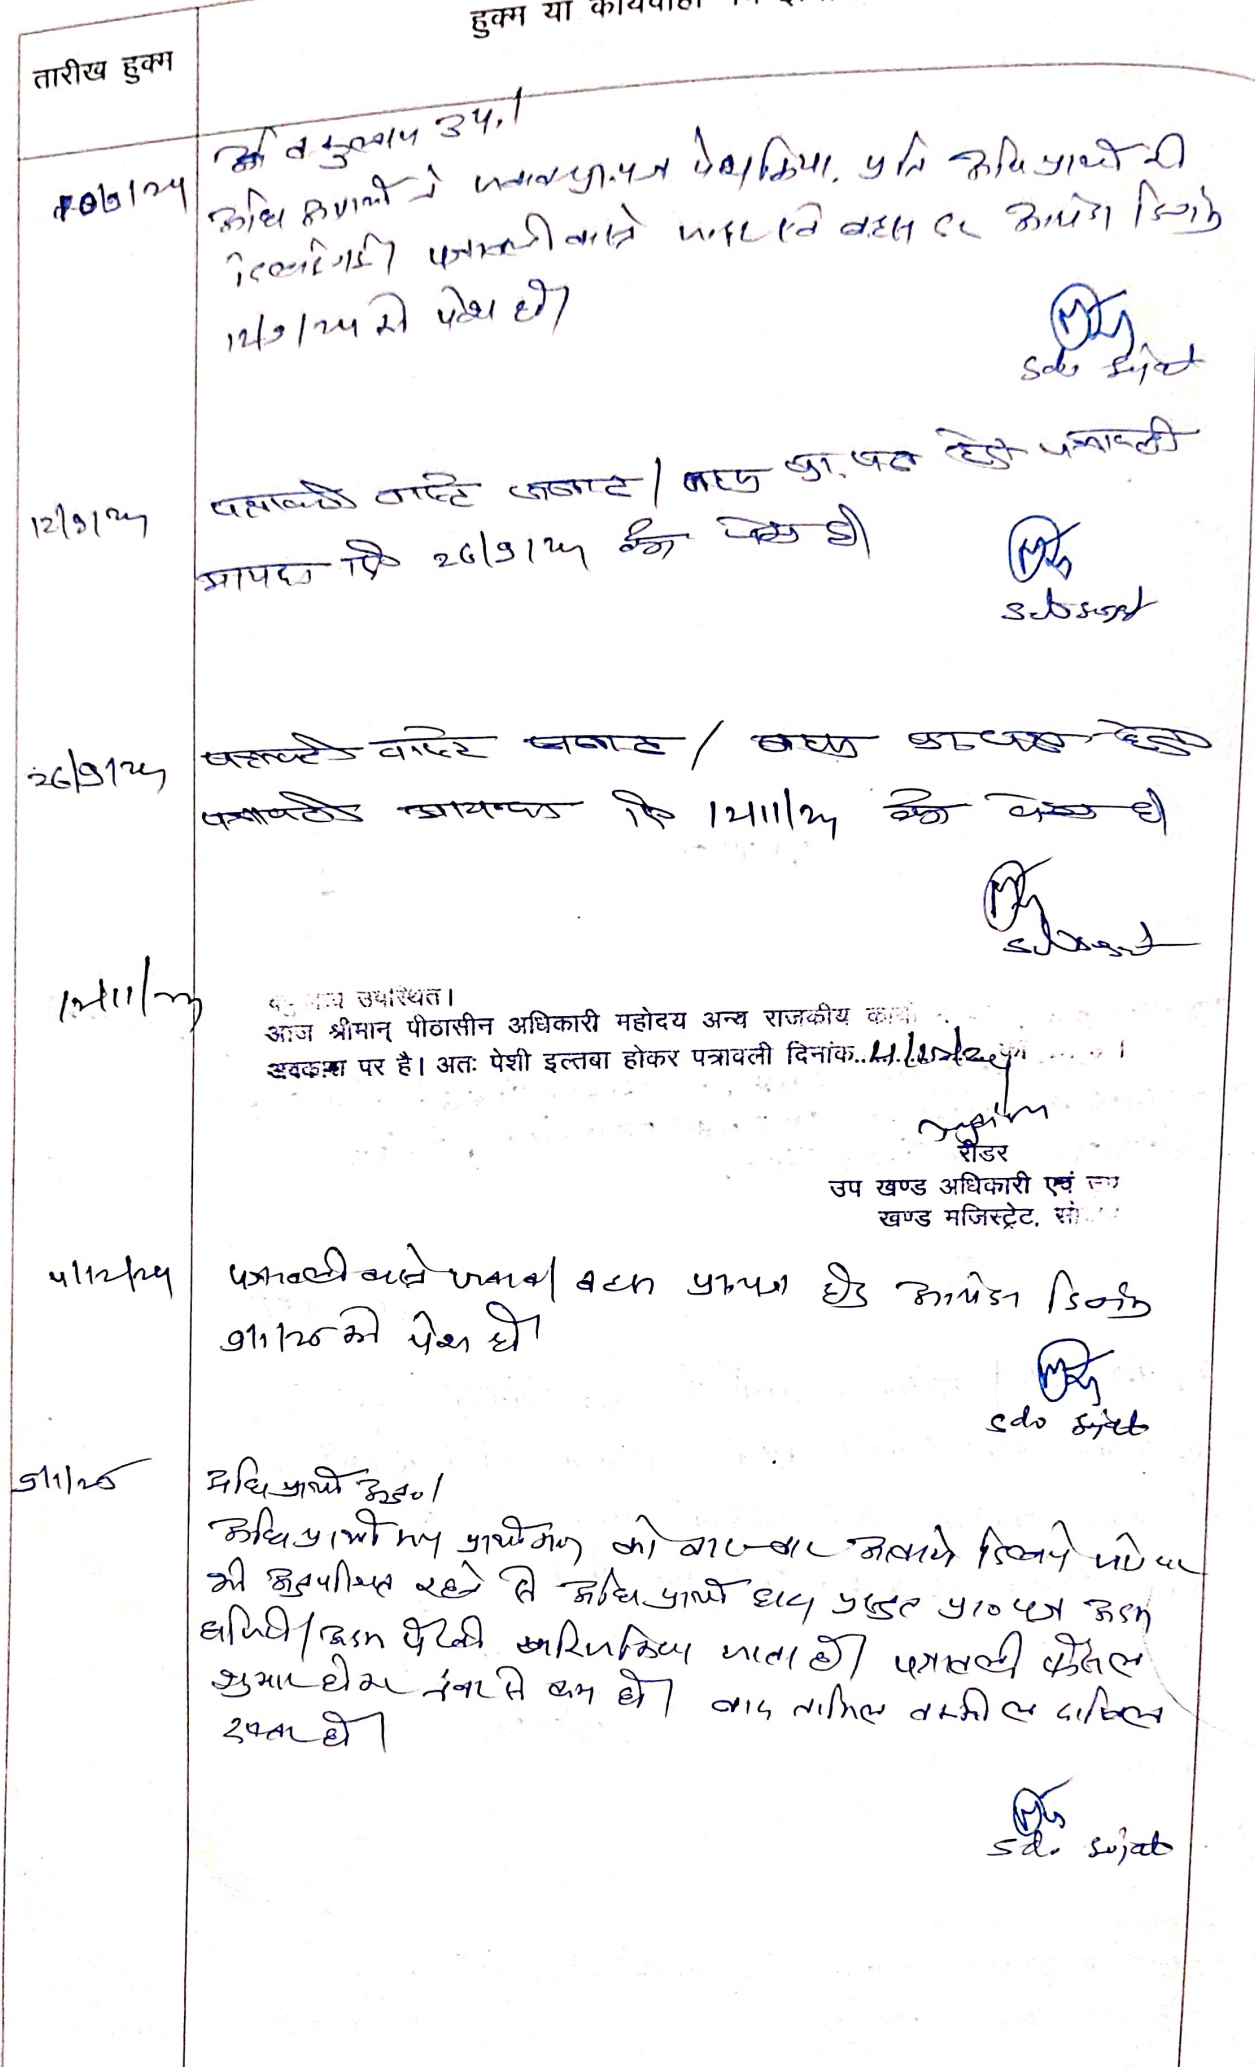 हुक्म या कार्यवाही
तारीख हुक्म
उप.।
अधि अप्रार्थी ने जवाब प्रा.पत्र पेश किया. प्रति अधि प्रार्थी को
दिलाई गई। पत्रावली वास्ते एवं बहस आयंदा दिनांक
12/9/24 को पेश हो।
Sdo Sojat
12/9/24
पत्रावली वास्ते जवाब / बहस प्रा. पत्र हेतु पत्रावली
आयंदा दि 26/9/24 को पेश हो।
Sdo Sojat
26/9/24
पत्रावली वास्ते जवाब / बहस प्रा पत्र हेतु
पत्रावली आयन्दा दि 12/11/24 को पेश हो
Sdo Sojat
12/11/24
उपस्थित।
आज श्रीमान् पीठासीन अधिकारी महोदय अन्य राजकीय कार्य
अवकाश पर है। अतः पेशी इल्तबा होकर पत्रावली दिनांक..4/12/24
रीडर
उप खण्ड अधिकारी एवं उप
खण्ड मजिस्ट्रेट, सो
4/12/24
पत्रावली वास्ते जवाब / बहस प्रा०पत्र हेतु आयंदा दिनांक
9/1/25 को पेश हो।
Sdo Sojat
9/1/25
अधि प्रार्थी अनु०।
अधि प्रार्थी मय प्रार्थीगण को बार-बार आवाजे दिलाये जाने पर
भी अनुपस्थित रहने से अधि प्रार्थी द्वारा प्रस्तुत प्रा० पत्र अदम
हाजिरी / अदम पैरवी खारिज किया जाता है। पत्रावली फैसल
शुमार होकर नंबर से कम हो। बाद तामिल तकमील दाखिल
दफ्तर हो।
Sdo Sojat